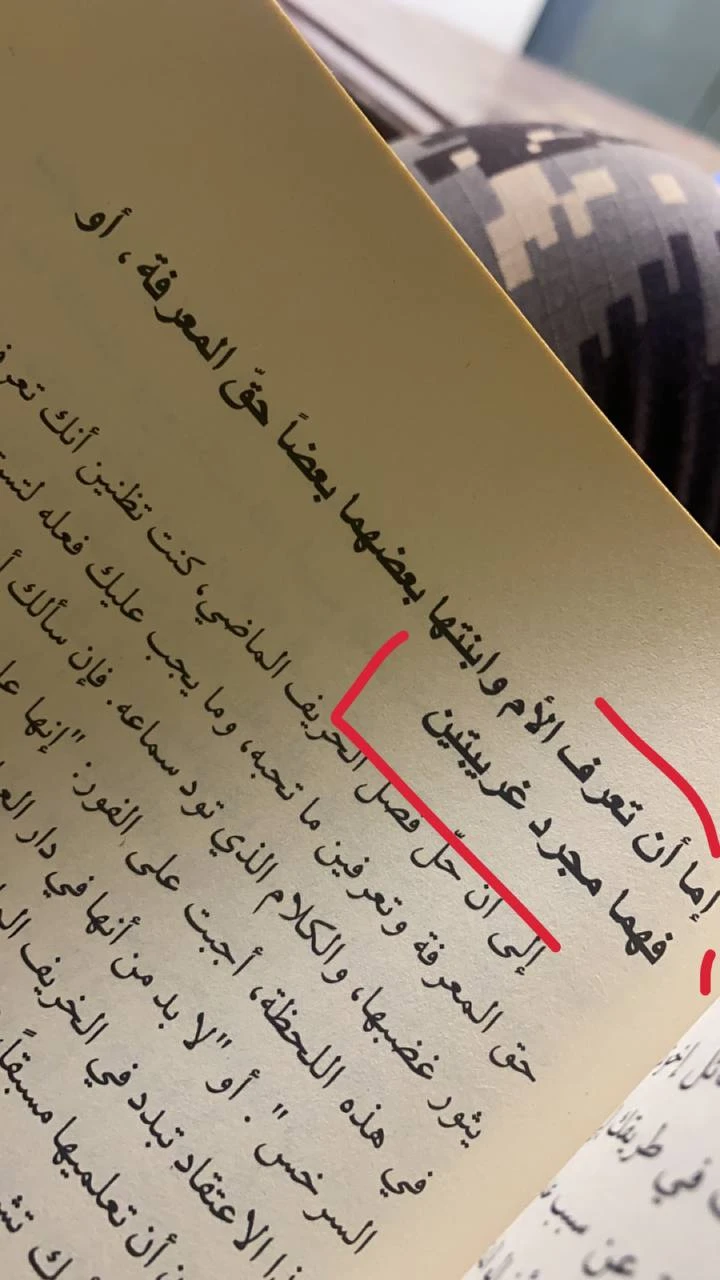 إما أن تعرف الأم وابنتها بعضهما بعضاً حقّ المعرفة، أو
فهما مجرد غريبتين
إلى أن حلّ فصل الخريف الماضي، كنت تظنين أنك
حق المعرفة وتعرفين ما تحبه، وما يجب عليك فعله
يثور غضبها، والكلام الذي تود سماعه. فإن سألك
في هذه اللحظة، أجبت على الفور: "إنها
السرخس". أو "لا بد من أنها في دار
الاعتقاد تبدد في الخريف
أن تعلميها مسبقاً
في طريقك
عن